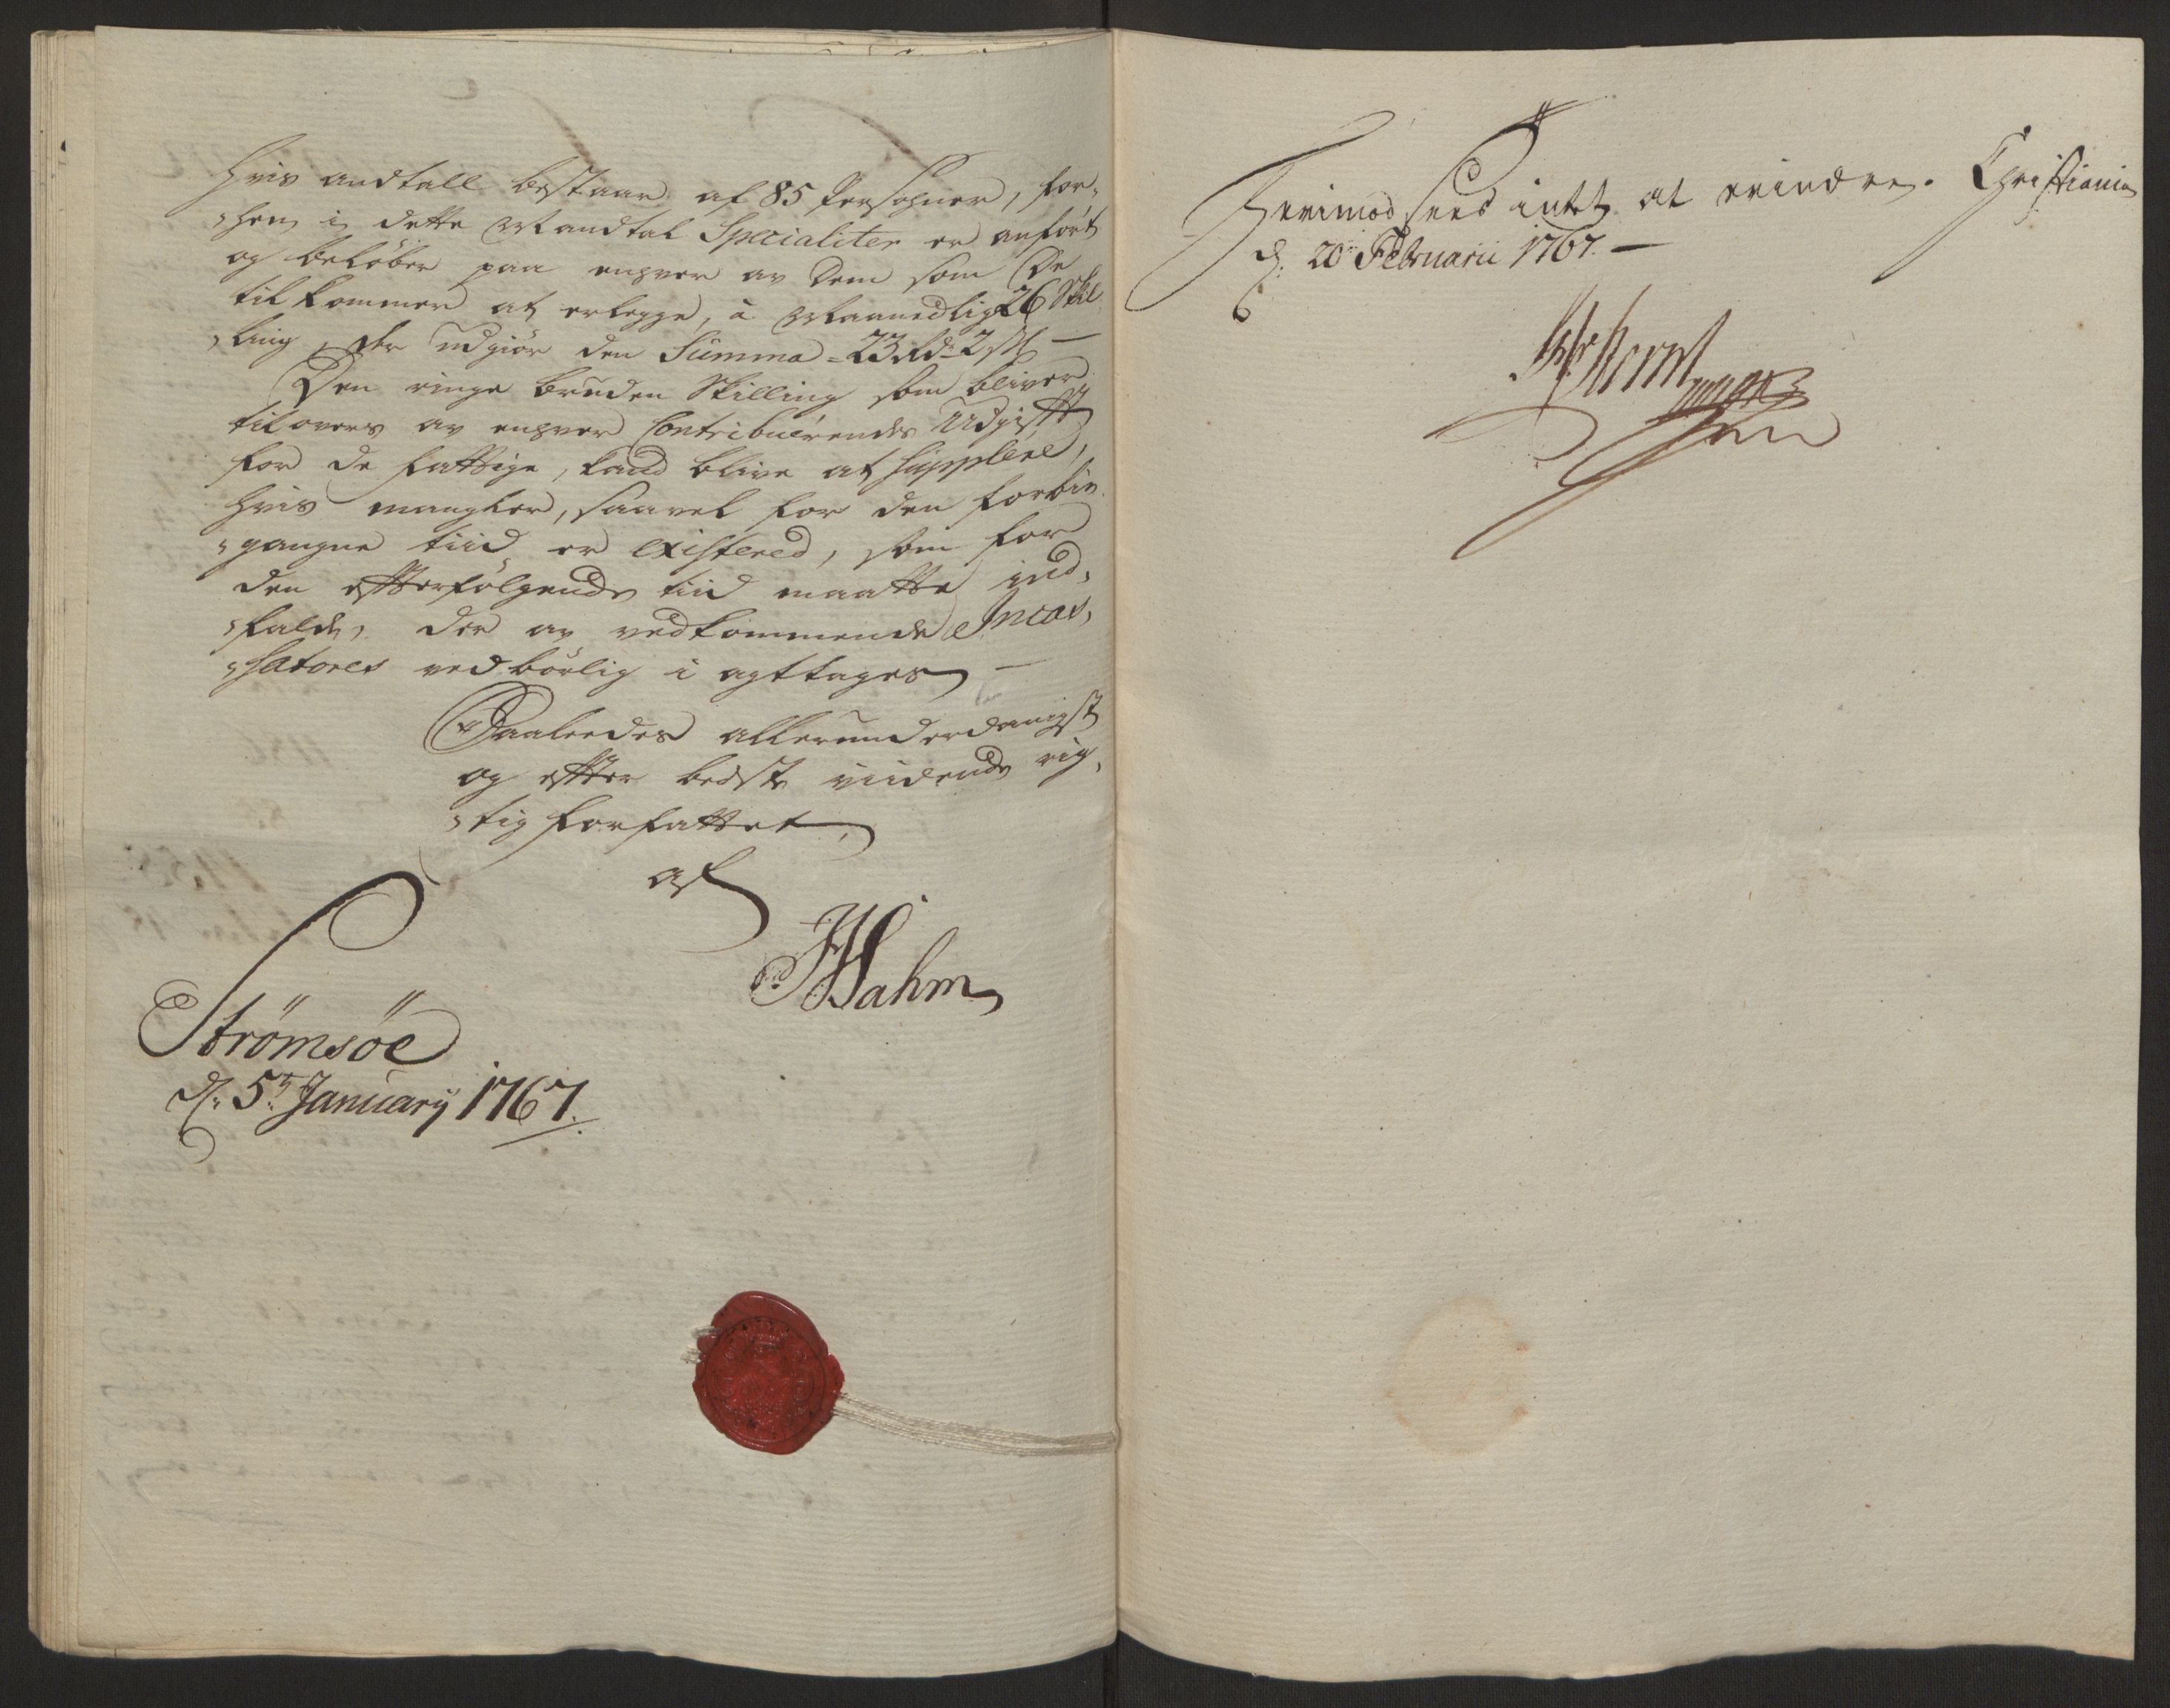 Hvis andtall bestaar af 85 Persohner, for,,
,,hen i dette Mandtal Specialiter er anfört
og beløber paa enhver av dem som De
tilkommer at erlegge, à Maanedlig 26 Skil
,,ling, der udgiör den Summa = 23 Rd. 2 s. —
Den ringe bruden Skilling som bliver
til overs av enhver Contribuérendes Udgifft
for de fattige, kand blive at Supplere,
hvis mangler, saavel for den forbie
,,gangne tiid er existered, som for
den effterfölgende tiid maatte ind,,
,,falde, der av vedkommende Incas,,
,,satores vedbörlig i agttages —
Saaleedes allerunderdanigst
og effter beste viidende rig,,
,,tig forfattet,
af
Hahm
Strömsöe
d. 5t. January 1767.
Herimod sees intet at erindre. Christiania
d. 20 Februarii 1767. —